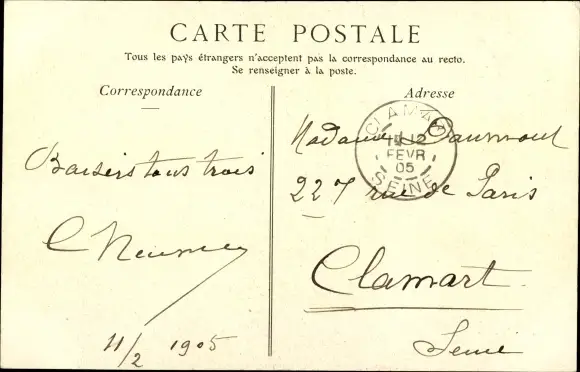 CARTE POSTALE
Tous les pays étrangers n'acceptent pas la correspondance au recto.
Se renseigner à la poste.
Correspondance
Baisers tous trois
11/2 1905
Adresse
CLAMART
12
FEVR
05
SEINE
Madame
227 rue de Paris
Clamart
Seine